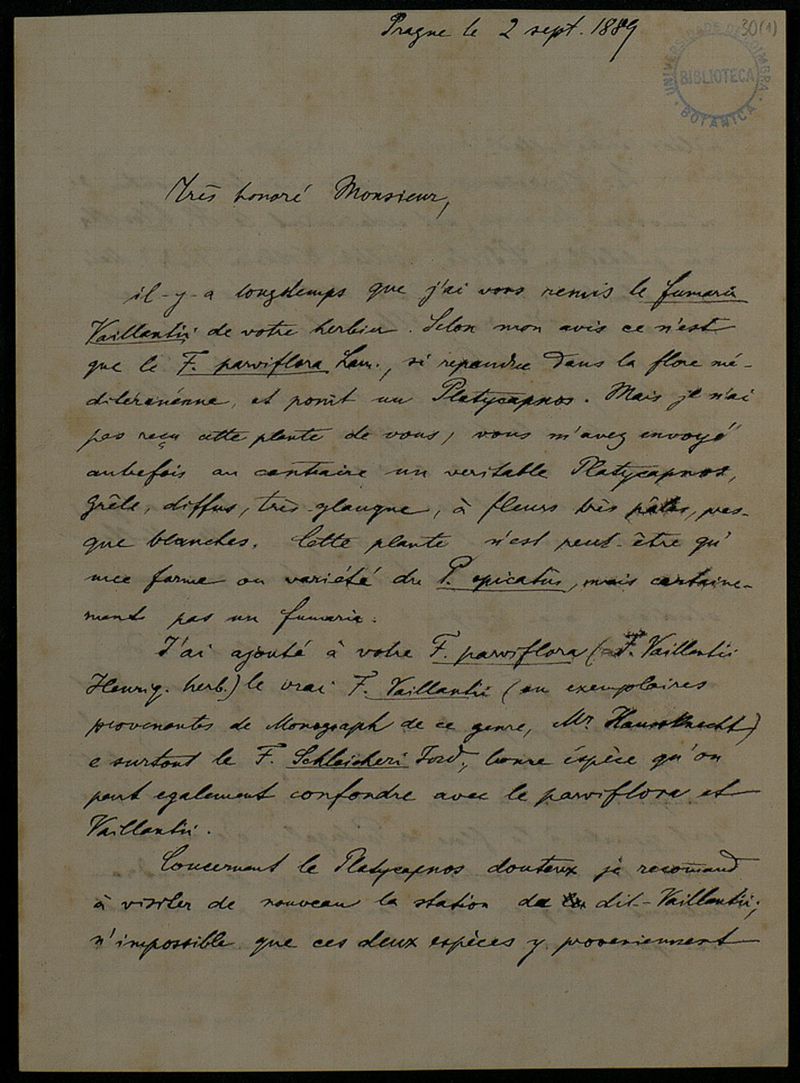 30(1)
UNIVERSIDADE DE COIMBRA
BIBLIOTECA
BOTANICA
Prague le 2 sept. 1889
Très honoré Monsieur,
il-y-a longtemps que j'ai vous remis le fumaria
Vaillantii de votre herbier. Selon mon avis ce n'est
que le F. parviflora Lam., si repandue dans la flore mé-
diteranénne, et point un Platycapnos. Mais je n'ai
pas reçu cette plante de vous, vous m'avez envoyé
autrefois au contraire un veritable Platycapnos,
grêle, diffus, très glauque, à fleurs très pâles, pres-
que blanches. Cette plante n'est peut-être qu'
une forme ou variété du P. spicatus, mais certaine-
ment pas un fumaria.
J'ai ajouté à votre F. parviflora (= F. Vaillantii
Henriq. herb.) le vrai F. Vaillantii (en exemplaires
provenantes de Monograph de ce genre, Mr Haussknecht)
e surtout le F. Schleicheri, bonne éspèce qu'on
peut egalement confondre avec le parviflora et
Vaillantii.
Concernant le Platycapnos douteux je recomand
à visiter de nouveau la station de dit-Vaillantii;
n'impossible que ces deux espèces y proveniennent